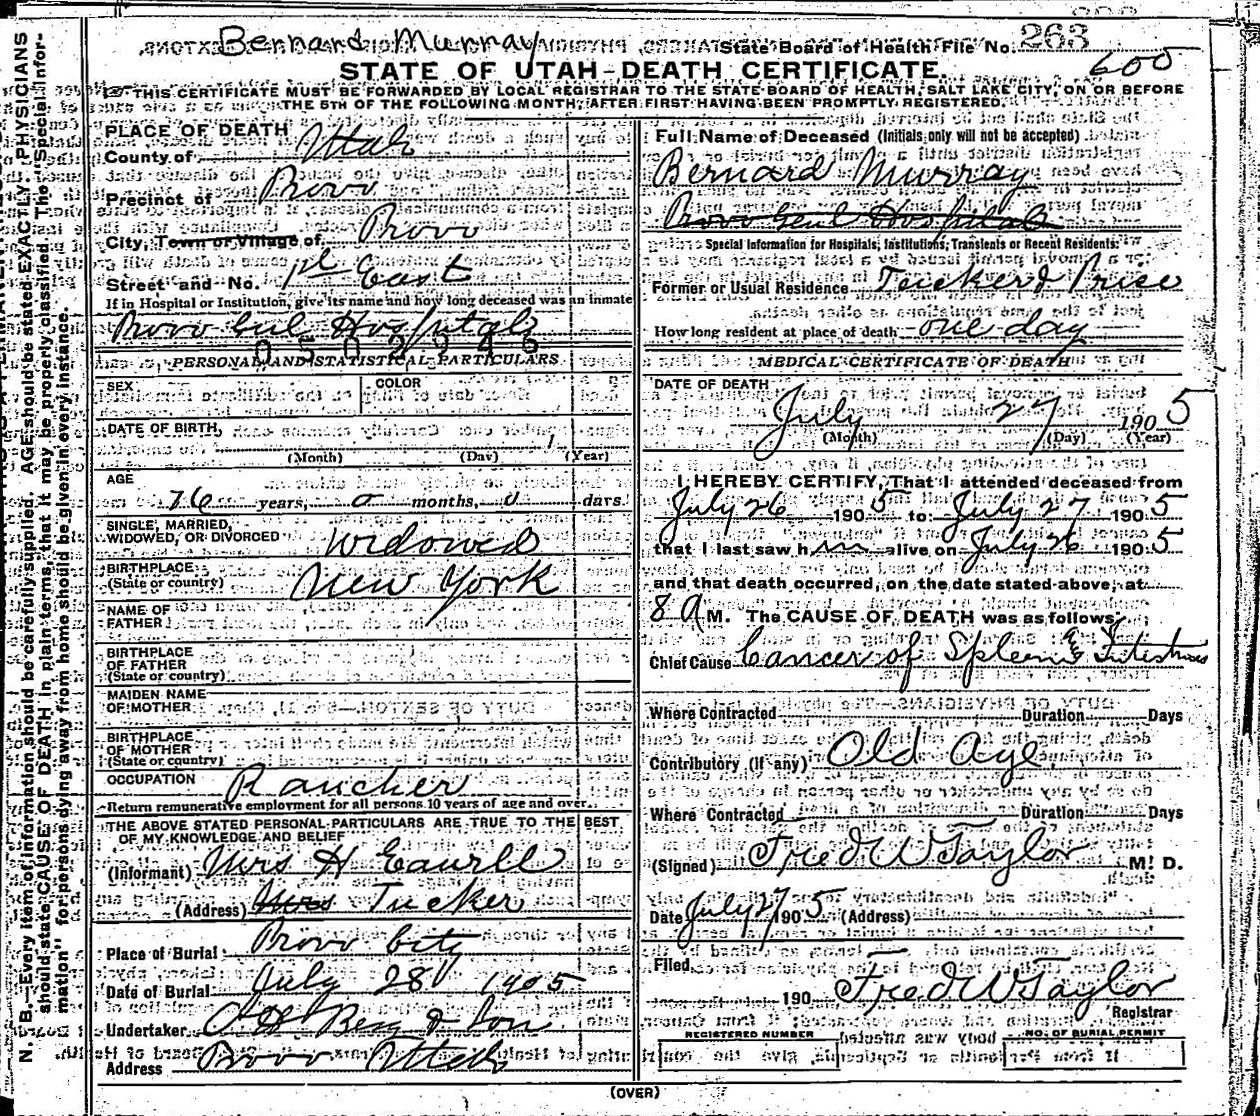 Bernard Murray
State Board of Health File No. 263
600
STATE OF UTAH-DEATH CERTIFICATE.
THIS CERTIFICATE MUST BE FORWARDED BY LOCAL REGISTRAR TO THE STATE BOARD OF HEALTH, SALT LAKE CITY, ON OR BEFORE
THE 5TH OF THE FOLLOWING MONTH, AFTER FIRST HAVING BEEN PROMPTLY REGISTERED.
PLACE OF DEATH
County of Utah
Precinct of Provo
City, Town or Village of Provo
Street and No. 1st East
If in Hospital or Institution, give its name and how long deceased was an inmate
Provo Genl Hospital
0502946
PERSONAL AND STATISTICAL PARTICULARS
SEX
COLOR
DATE OF BIRTH
(Month) (Day) (Year)
AGE
76 years, 0 months, 0 days
SINGLE, MARRIED,
WIDOWED, OR DIVORCED Widowed
BIRTHPLACE
(State or country) New York
NAME OF
FATHER
BIRTHPLACE
OF FATHER
(State or country)
MAIDEN NAME
OF MOTHER
BIRTHPLACE
OF MOTHER
(State or country)
OCCUPATION Rancher
Return remunerative employment for all persons 10 years of age and over.
THE ABOVE STATED PERSONAL PARTICULARS ARE TRUE TO THE BEST
OF MY KNOWLEDGE AND BELIEF
(Informant) Mrs H
(Address) Mrs Tucker
Place of Burial Provo City
Date of Burial July 28 1905
Undertaker Berg & Son
Address Provo Utah
Full Name of Deceased (Initials only will not be accepted)
Bernard Murray
Provo Genl Hospital
Special Information for Hospitals, Institutions, Transients or Recent Residents:
Former or Usual Residence Price
How long resident at place of death one day
MEDICAL CERTIFICATE OF DEATH
DATE OF DEATH
July 27 1905
(Month) (Day) (Year)
I HEREBY CERTIFY, That I attended deceased from
July 26 1905 to July 27 1905
that I last saw him alive on July 26 1905
and that death occurred, on the date stated above, at
8 A M. The CAUSE OF DEATH was as follows:
Chief Cause Cancer of Spleen & Intestines
Where Contracted Duration Days
Contributory (if any) Old Age
Where Contracted Duration Days
(Signed) Fred W Taylor M. D.
Date July 27 1905 (Address)
Filed
190 Fred W Taylor
Registrar
REGISTERED NUMBER
NO. OF BURIAL PERMIT
(OVER)
N. B.—Every item of information should be carefully supplied. AGE should be stated EXACTLY. PHYSICIANS
should state CAUSE OF DEATH in plain terms, that it may be properly classified. The "Special Infor-
mation" for persons dying away from home should be given in every instance.